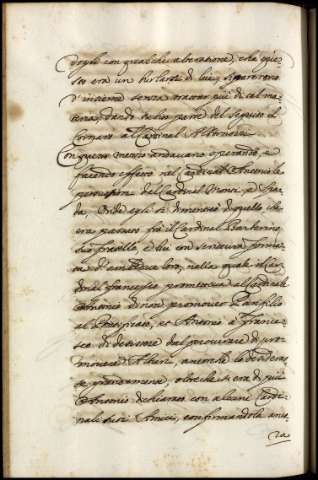 dogli con qualche alteratione, che que-
sto era un burlarsi di lui, si partirono
d'insieme senza trattar più di tal ma-
teria, dando tutto però del seguito il
Cornaro al Cardinal Altomonte.
Con questi mezzi andavano operando, e
facendo effetto nel Cardinal Antonio le
persuasioni del Cardinal Monti, e Spa-
da. Onde egli si dimenticò di quello che
era passato fra il Cardinal Barberino
suo fratello, e lui con scrittura firma-
ta d'ambedue loro, nella quale il Car-
dinal Francesco prometteva al Cardinale
Antonio di non promover Panfilio
al Pontificato, et Antonio a France-
sco di desistere dal procurare di pro-
movere Altieri, ancorché lo desideras-
se grandemente, oltreché si era di più
Antonio dichiarato con alcuni Cardi-
nali suoi Amici, confirmandola anco-
ra